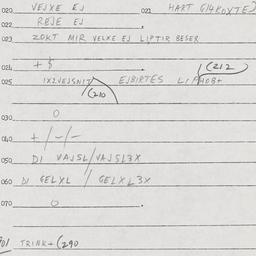 020 VEJXE EJ 021 HART G14ROXTEJ
022 REJE EJ
023 ZOKT MIR VEJXE EJ LIPTIR BESER
024 + 5 (212
025 1X2VEJSNIT EJBIRTES LIPHOB+
(210
030 0
040 + / - / -
050 DI VAJSL/VAJSL3X
060 DI GELXL / GELXL3X
070 0
901 TRINK+(290